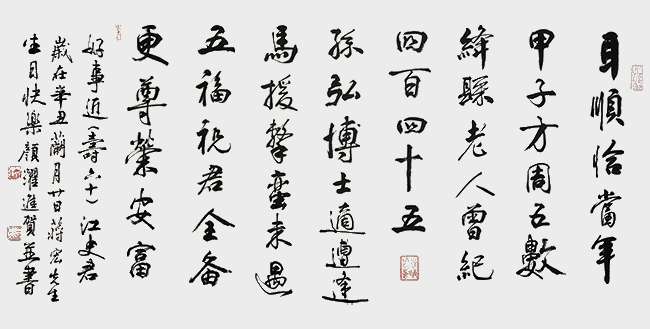 耳順恰當年
甲子方周五數
絳縣老人曾紀
四百四十五
孫弘博士適遭逢
馬援擊蠻未遇
五福祝君全备
更尊榮安富
好事近(壽六十)江史君
歲在辛丑蘭月廿日蔣宏先生
生日快樂顏濯進賀並書